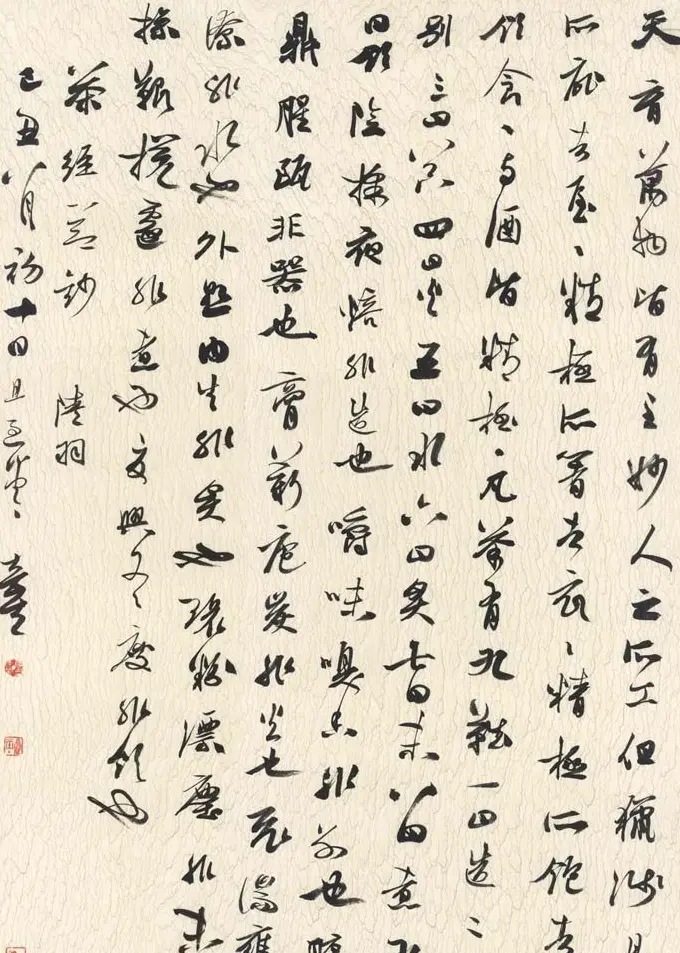 天育萬物皆有至妙人之所工但獵淺
所庇者屋〻精極所著者衣〻精極所飽者
飲食〻與酒皆精極〻凡茶有九難一曰造二
別三曰器四曰火五曰水六曰炙七曰末八曰煮
曰飲陰採夜焙非造也嚼味嗅香非別也膻
鼎腥甌非器也膏薪庖炭非火也飛湍壅
潦非水也外熟內生非炙也碧粉縹塵非末
操艱攪遽非煮也夏興冬〻廢非飲也
茶經 鈔 陸羽
己丑八月初十日